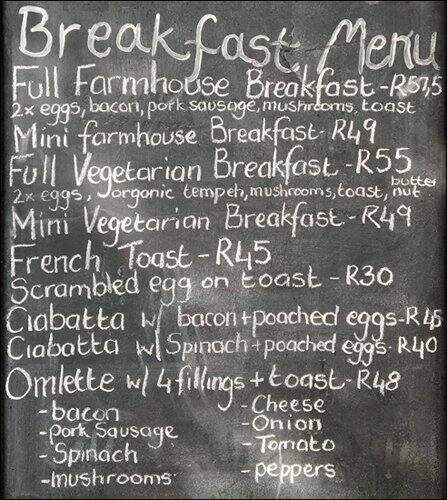 Breakfast Menu
Full Farmhouse Breakfast - R57,5
2x eggs, bacon, pork sausage, mushrooms, toast
Mini farmhouse Breakfast - R49
Full Vegetarian Breakfast - R55
2x eggs, organic tempeh, mushrooms, toast, nut butter
Mini Vegetarian Breakfast - R49
French Toast - R45
Scrambled egg on toast - R30
Ciabatta w/ bacon + poached eggs - R45
Ciabatta w/ Spinach + poached eggs - R40
Omlette w/ 4 fillings + toast - R48
- bacon
- pork Sausage
- Spinach
- mushrooms
- Cheese
- Onion
- Tomato
- peppers